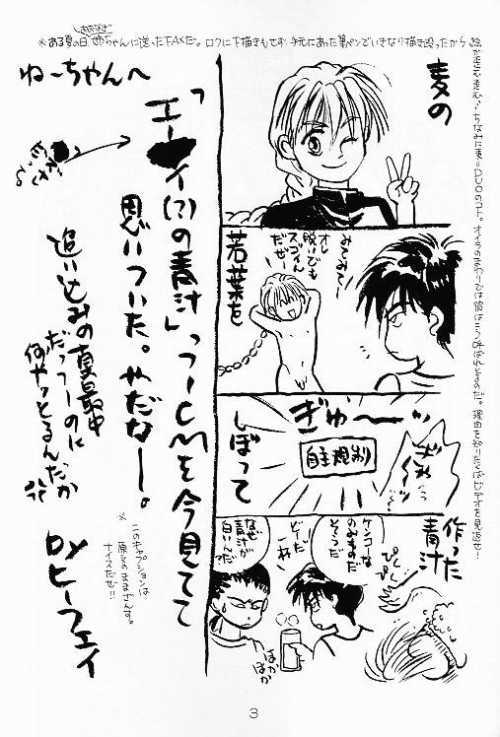 ※ある夏の日姉ちゃんに送ったFAXだ。ロクに下描きもせず、手元にあった筆ペンでいきなり描き殴ったから
ちなみに麦=DUOのコト。オイラのまわりでは彼はこう呼ばれてるのだ。理由を知りたくばビデオを見返せ!
麦の
みてみてー
オレ
脱いでも
スゴイん
だぜー
若葉を
ぎゅ〜〜ッ
自主規制
しぼって
作った
青汁
ぴくっ
ぴくっ
ケンコーな
のみものだ
そうだ
ビミだ
なぜ
青汁が
白いんだ
ほか
ほか
ねーちゃんへ
「エーイ(?)の青汁」っつーCMを今見てて
思いついた。やだなー。
追い込みの真最中
だっつーのに
何やっとるんだか
※
このキャプションは
原文のまんまっす。
ナイスだぜ!!
byヒーフェイ
3